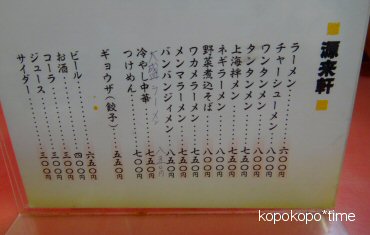 源来軒
ラーメン 六〇〇円
チャーシューメン 八〇〇円
ワンタンメン 七五〇円
タンタンメン 七五〇円
上海拌メン 七五〇円
ネギラーメン 八〇〇円
野菜煮込そば 八〇〇円
ワカメラーメン 七五〇円
メンマラーメン 七五〇円
バンバンジィメン 八五〇円
大盛ラーメン 八五〇円
冷やし中華 七五〇円
つけめん 七〇〇円
ギョウザ(餃子) 五五〇円
ビール 六五〇円
お酒 四〇〇円
コーラ 三〇〇円
ジュース 三〇〇円
サイダー 三〇〇円
kopokopo*time